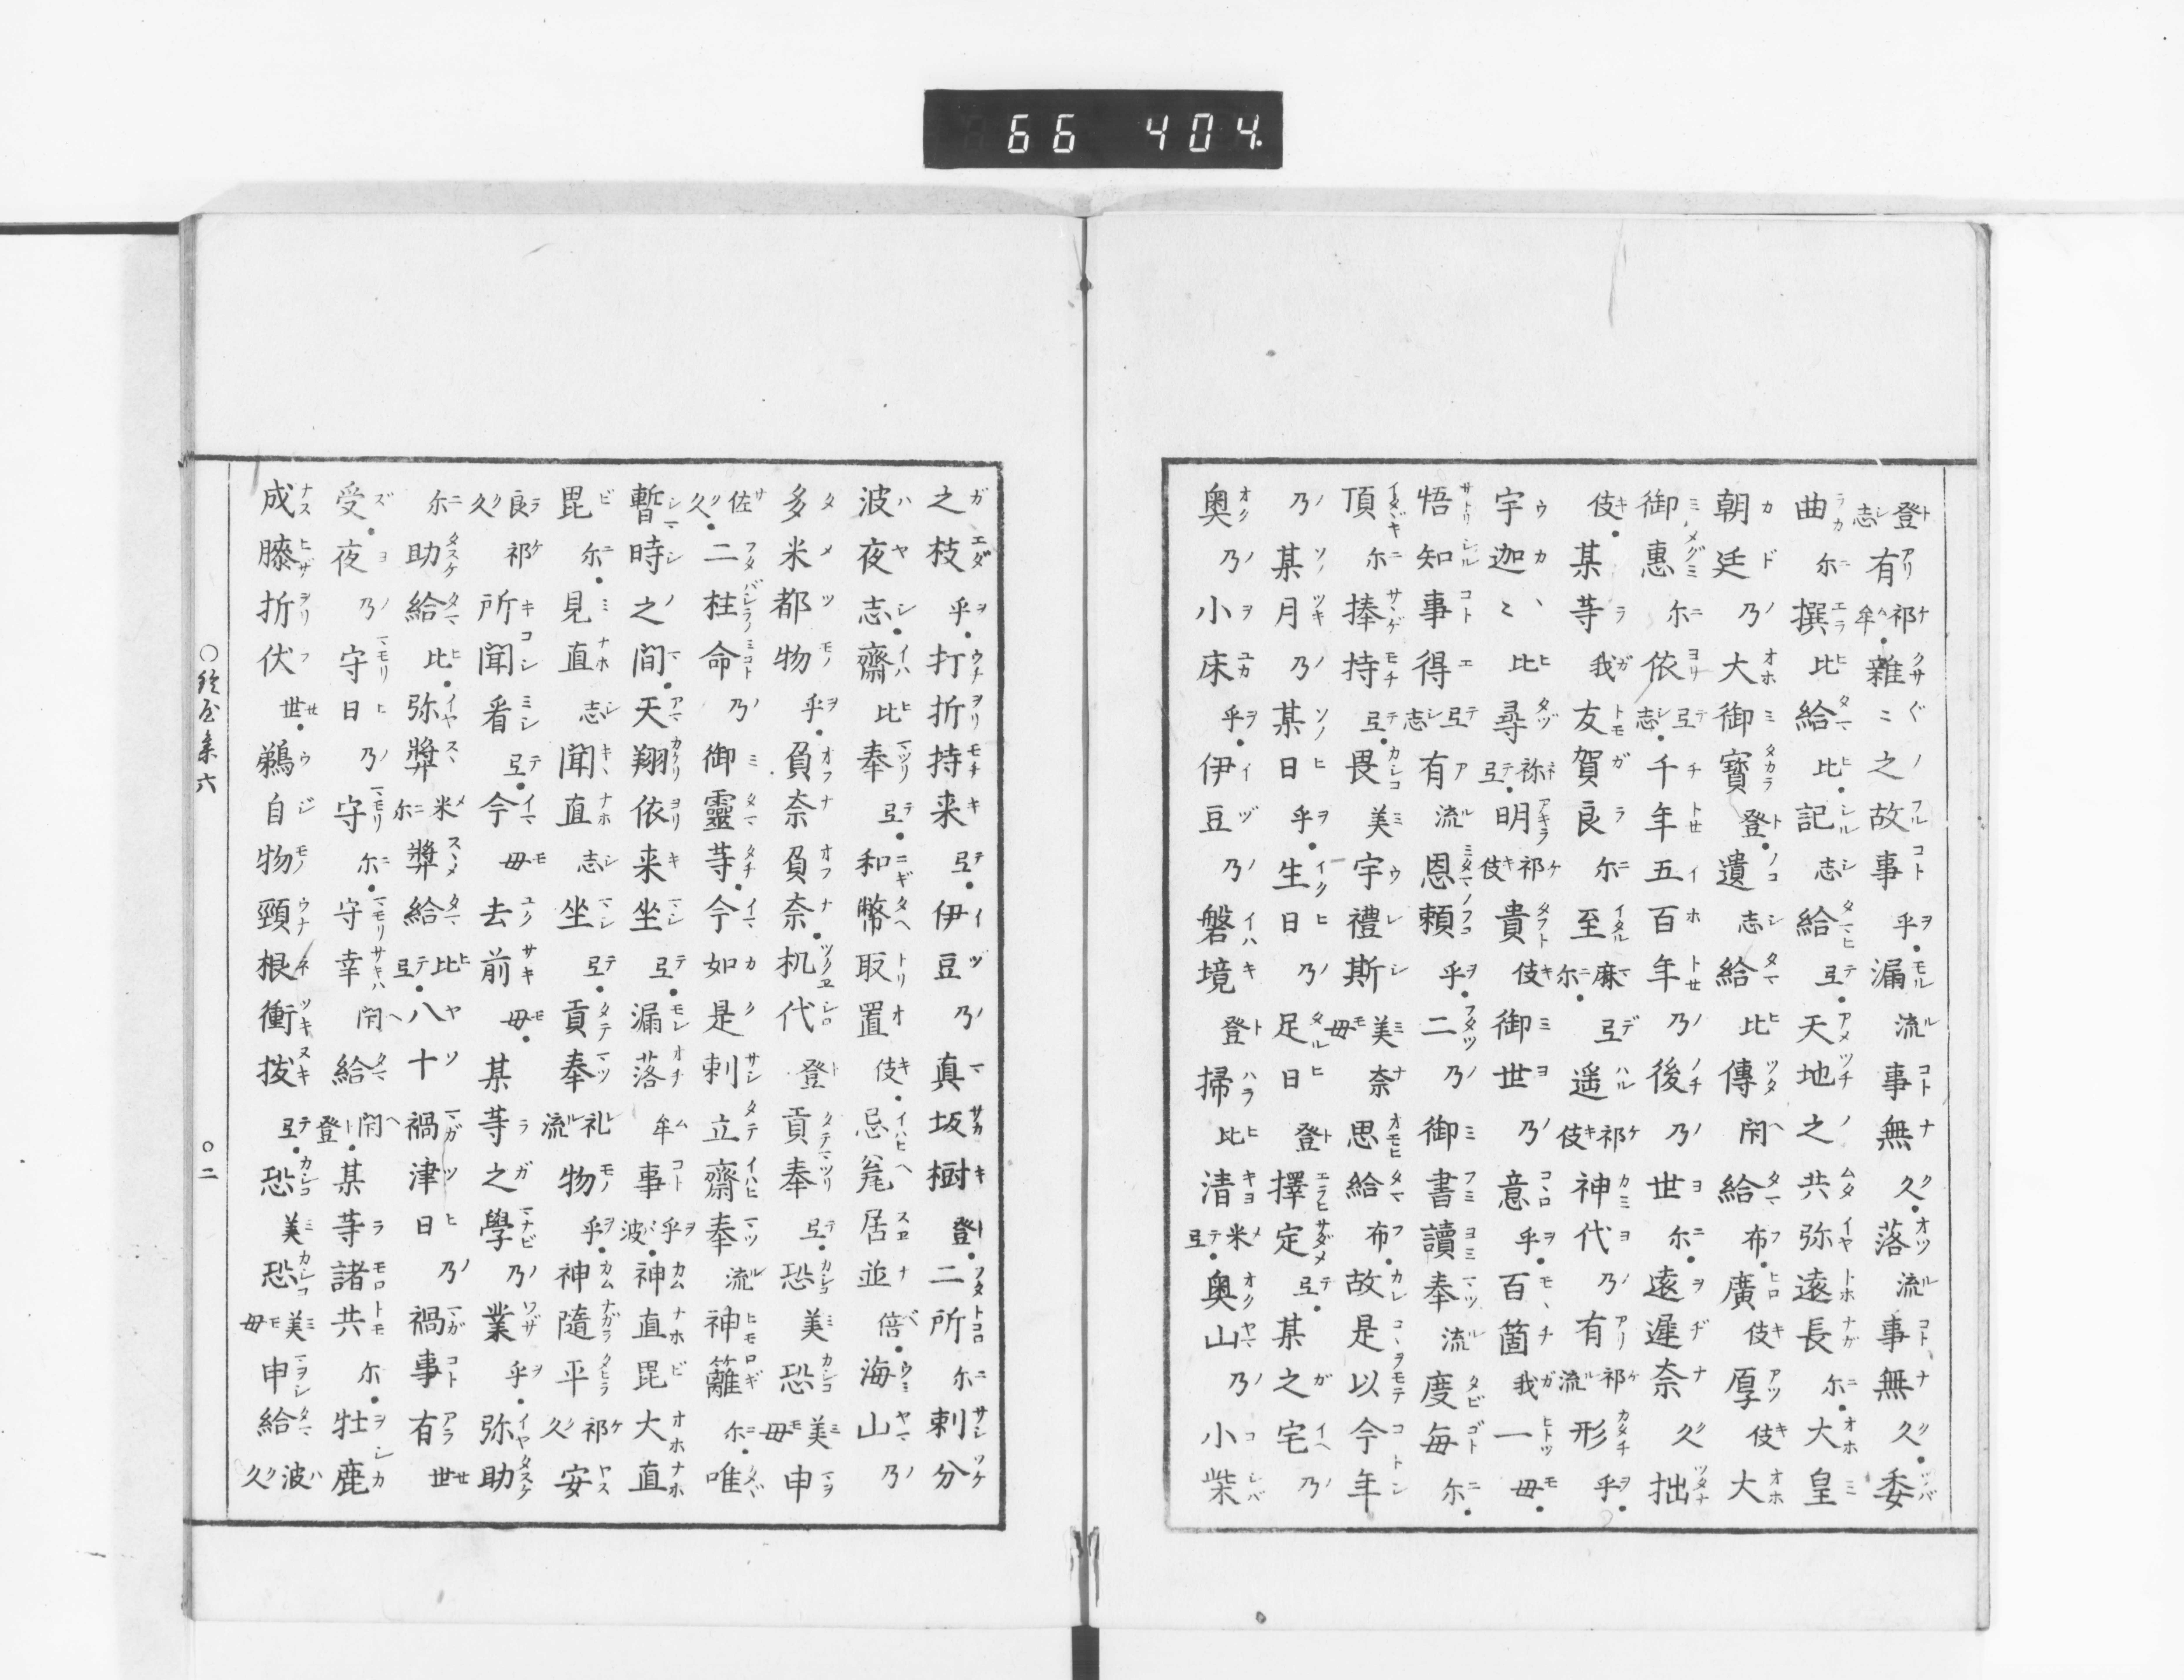 66 404.
登志有祁牟雜〻之故事乎漏流事無久落流事無久委
曲尓撰比給比記志給弖天地之共弥遠長尓大皇
朝廷乃大御寶登遺志給比傳閇給布廣伎厚伎大
御惠尓依弖志千年五百年乃後乃世尓遠遅奈久拙
伎某等我友賀良尓至麻尓弖遥祁伎神代乃有祁流形乎
宇迦〻比尋祢弖明祁伎貴伎御世乃意乎百箇我一毋
悟知事得弖志有流恩頼乎二乃御書讀奉流度毎尓
頂尓捧持弖畏美宇禮斯美毋奈思給布故是以今年
乃某月乃某日乎生日乃足日登擇定弖某之宅乃
奥乃小床乎伊豆乃磐境登掃比清米弖奥山乃小柴
之枝乎打折持来弖伊豆乃真坂樹登二所尓刺分
波夜志齋比奉弖和幣取置伎忌瓮居並倍海山乃
多米都物乎負奈負奈机代登貢奉弖恐美恐美毋申
佐久二柱命乃御靈等今如是刺立齋奉流神籬尓唯
暫時之間天翔依来坐弖漏落牟事乎波神直毘大直
毘尓見直志聞直志坐弖貢奉礼流物乎神隨平祁久安
良久祁所聞看弖今毋去前毋某等之學乃業乎弥助
尓助給比弥奬米尓奬給比弖八十禍津日乃禍事有世
受夜乃守日乃守尓守幸閇給閇登某等諸共尓牡鹿
成膝折伏世鵜自物頸根衝抜弖恐美恐美毋申給波久
○鈴屋集六
○二